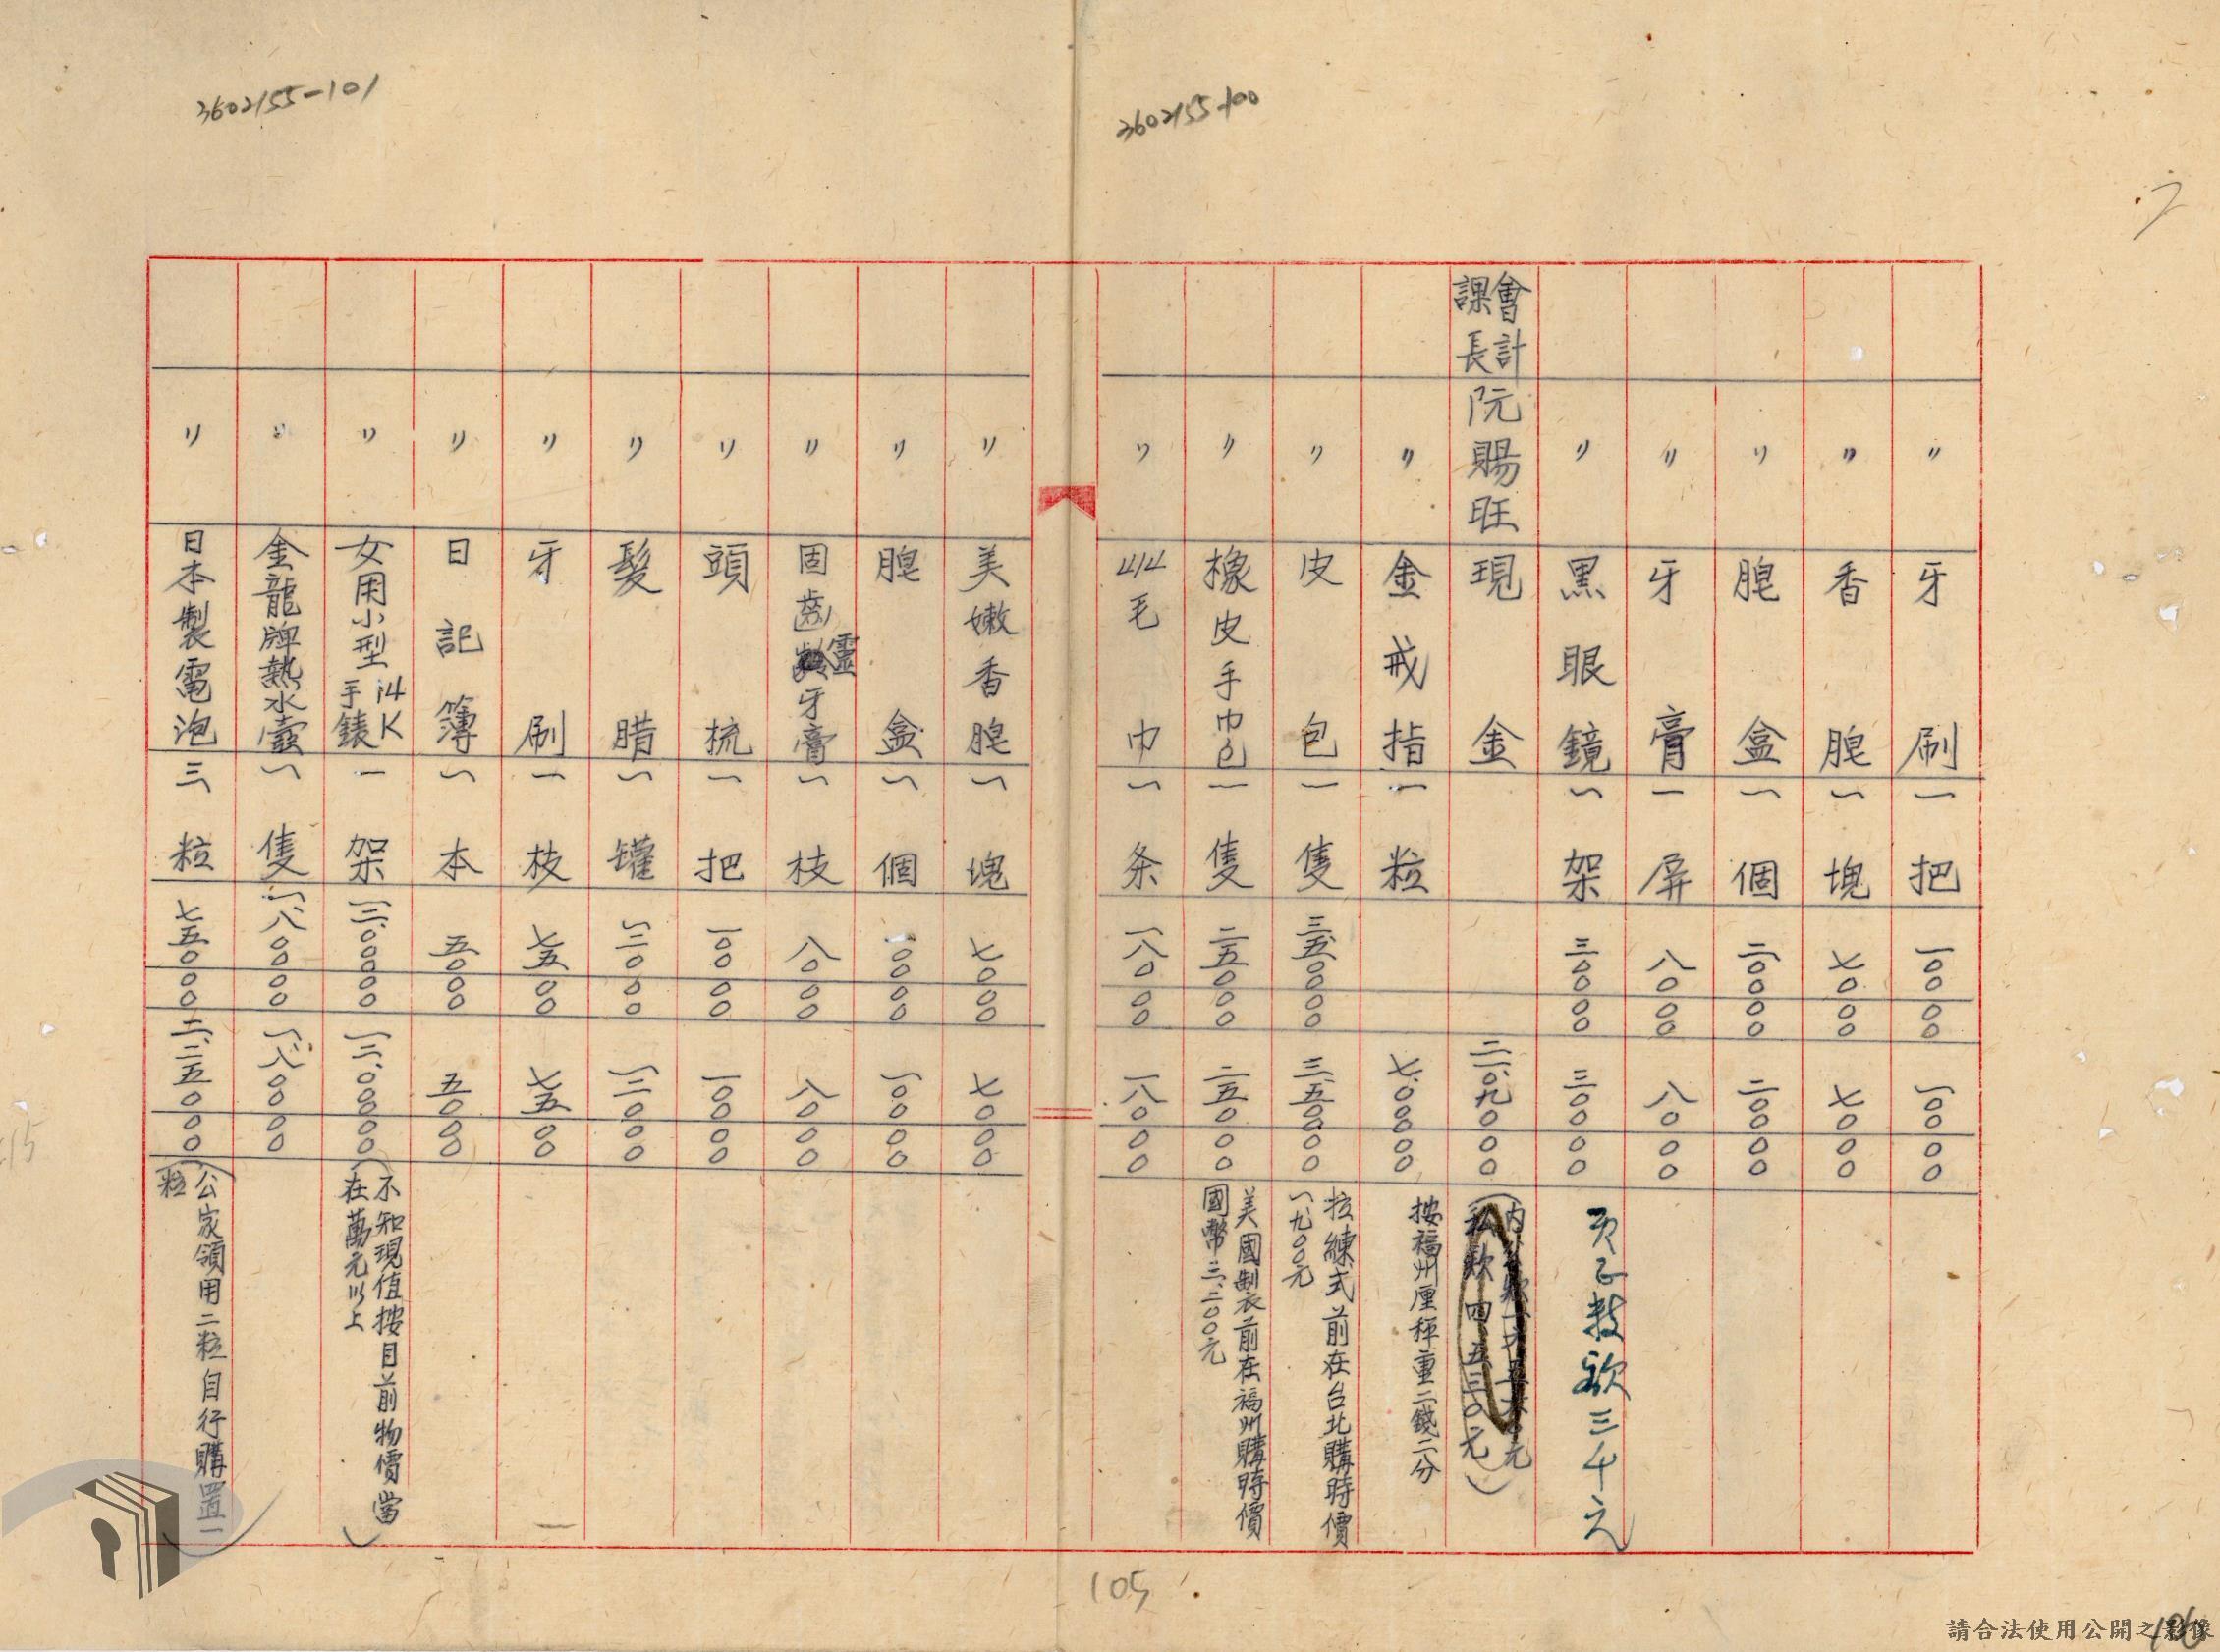 3602155-100
3602155-101
〃 牙刷 一把 一〇〇〇〇 一〇〇〇〇
〃 香胰 一塊 七〇〇〇 七〇〇〇
〃 胰盒 一個 二〇〇〇〇 二〇〇〇〇
〃 牙膏 一屏 八〇〇〇 八〇〇〇
〃 黑眼鏡 一架 三〇〇〇〇 三〇〇〇〇
三千元
會計課長 阮賜旺 現金
元
私款四五三〇元)
〃 金戒指 一粒 七、〇〇〇〇〇
按福州厘秤重二錢二分
〃 皮包 一隻 三、五〇〇〇〇 三、五〇〇〇〇
拉練式前在台北購時價
一、九〇〇元
〃 橡皮手巾包 一隻 二五〇〇〇 二五〇〇〇
美國製前在福州購時價
國幣三、二〇〇元
〃 毛巾 一条 一八〇〇〇 一八〇〇〇
〃 美嫩香胰 一塊 七〇〇〇 七〇〇〇
〃 胰盒 一個 一〇〇〇〇 一〇〇〇〇
〃 固齒靈牙膏 一枝 八〇〇〇 八〇〇〇
〃 頭梳 一把 一〇〇〇〇 一〇〇〇〇
〃 髮腊 一罐 一二〇〇〇 一二〇〇〇
〃 牙刷 一枝 七五〇〇 七五〇〇
〃 日記簿 一本 五〇〇〇 五〇〇〇
〃 女用小型14K手錶 一架
(不知現值按目前物價當
在萬元以上)
〃 金龍牌熱水壺 一隻 一、八〇〇〇〇 一、八〇〇〇〇
〃 日本製電泡 三粒 七五〇〇〇 二、二五〇〇〇
(公家領用二粒自行購置一
粒)
105
請合法使用公開之影像